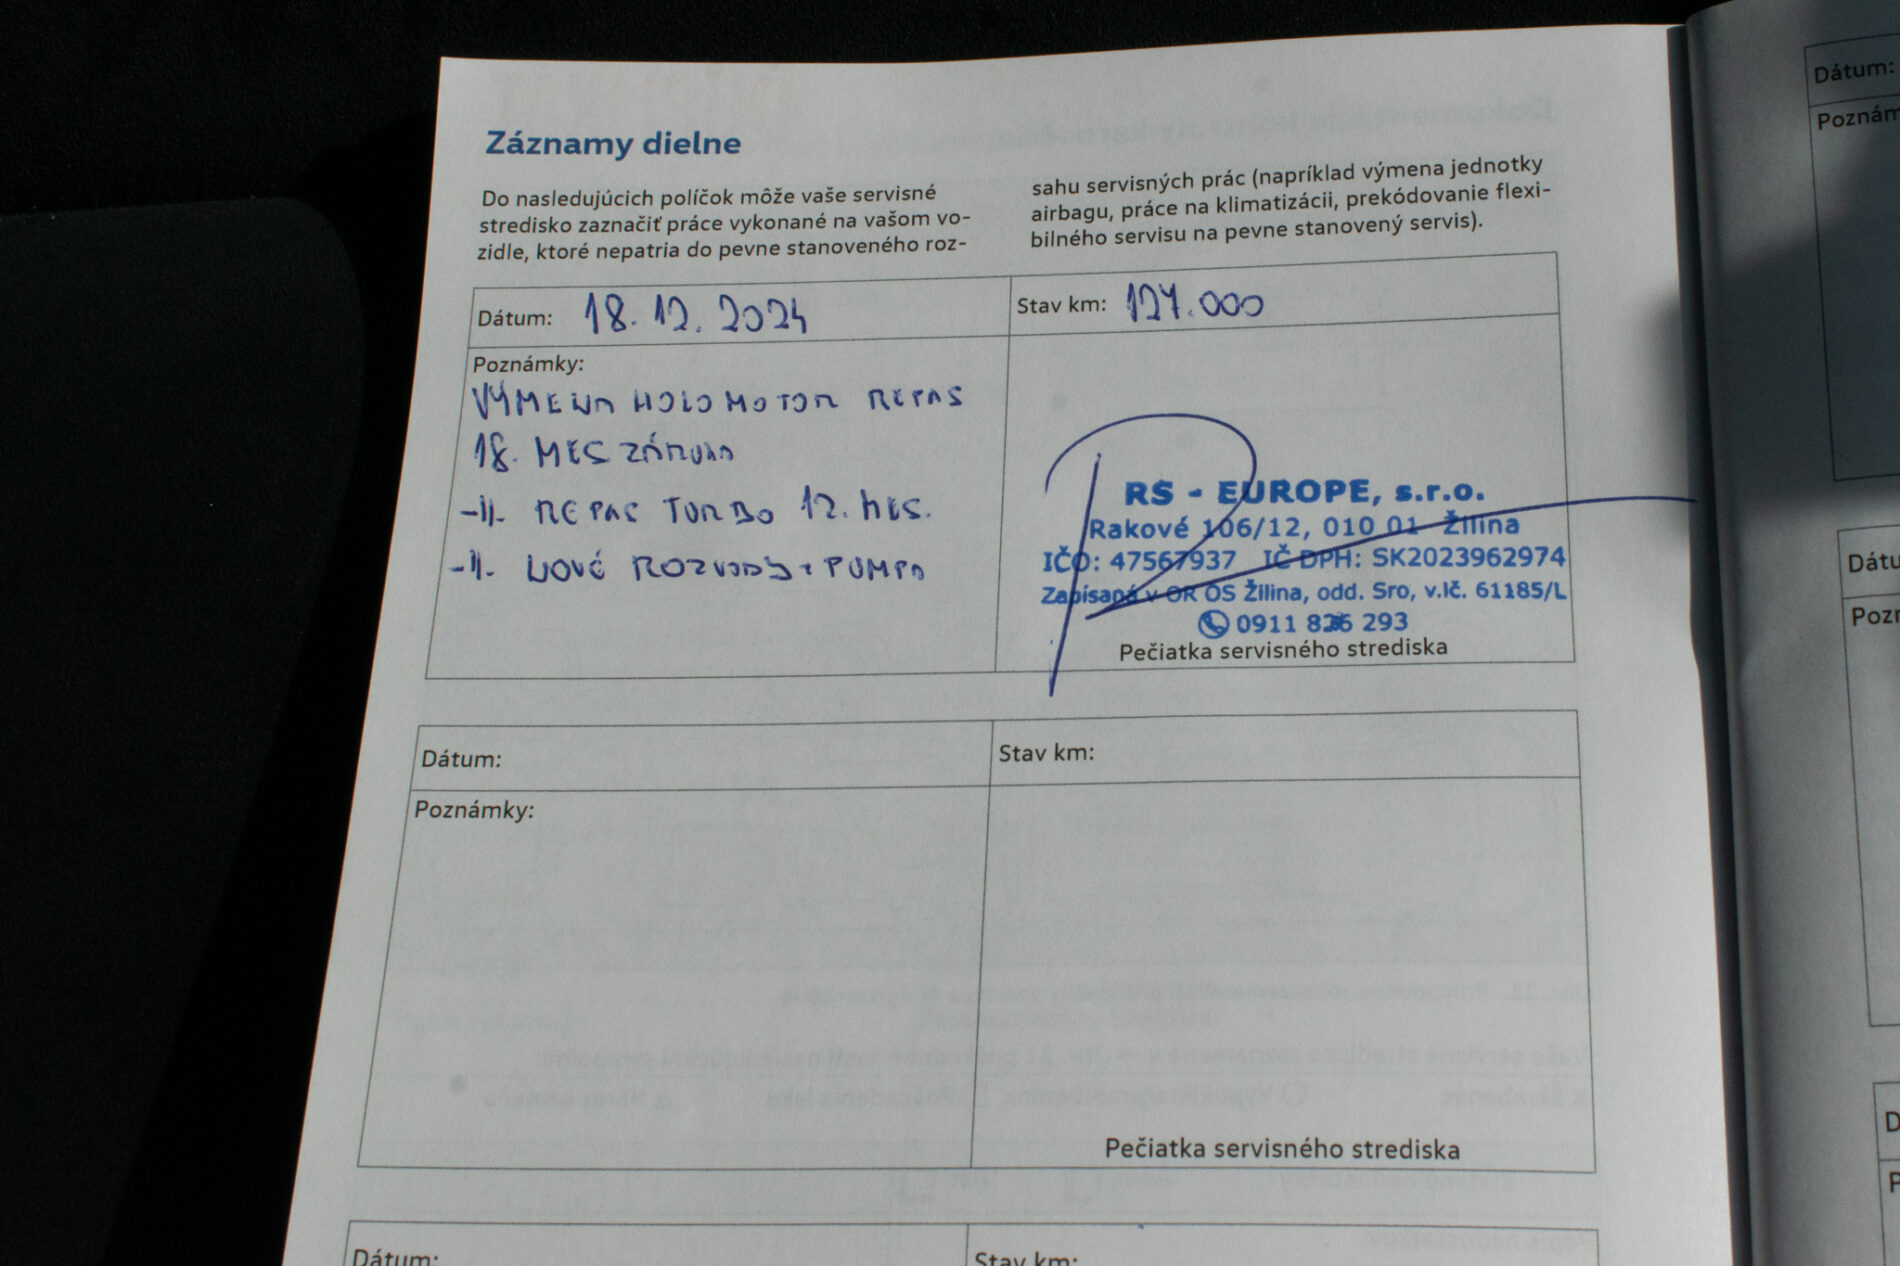 Záznamy dielne
Do nasledujúcich políčok môže vaše servisné
stredisko zaznačiť práce vykonané na vašom vo-
zidle, ktoré nepatria do pevne stanoveného roz-
sahu servisných prác (napríklad výmena jednotky
airbagu, práce na klimatizácii, prekódovanie flexi-
bilného servisu na pevne stanovený servis).
Dátum: 18.12.2024
Stav km: 127.000
Poznámky:
VÝMENA HOLOMOTOR REPAS
18. MES ZÁRUKA
-11- REPAS TURBO 12. MES.
-11- NOVÉ ROZVODY + PUMPA
RS - EUROPE, s.r.o.
Rakové 106/12, 010 01 Žilina
IČO: 47567937 IČ DPH: SK2023962974
Zapísaná v OR OS Žilina, odd. Sro, v.lč. 61185/L
0911 826 293
Pečiatka servisného strediska
Dátum:
Stav km:
Poznámky:
Pečiatka servisného strediska
Dátum:
Stav km:
Dátum:
Poznám
Dátu
Pozn
D
P